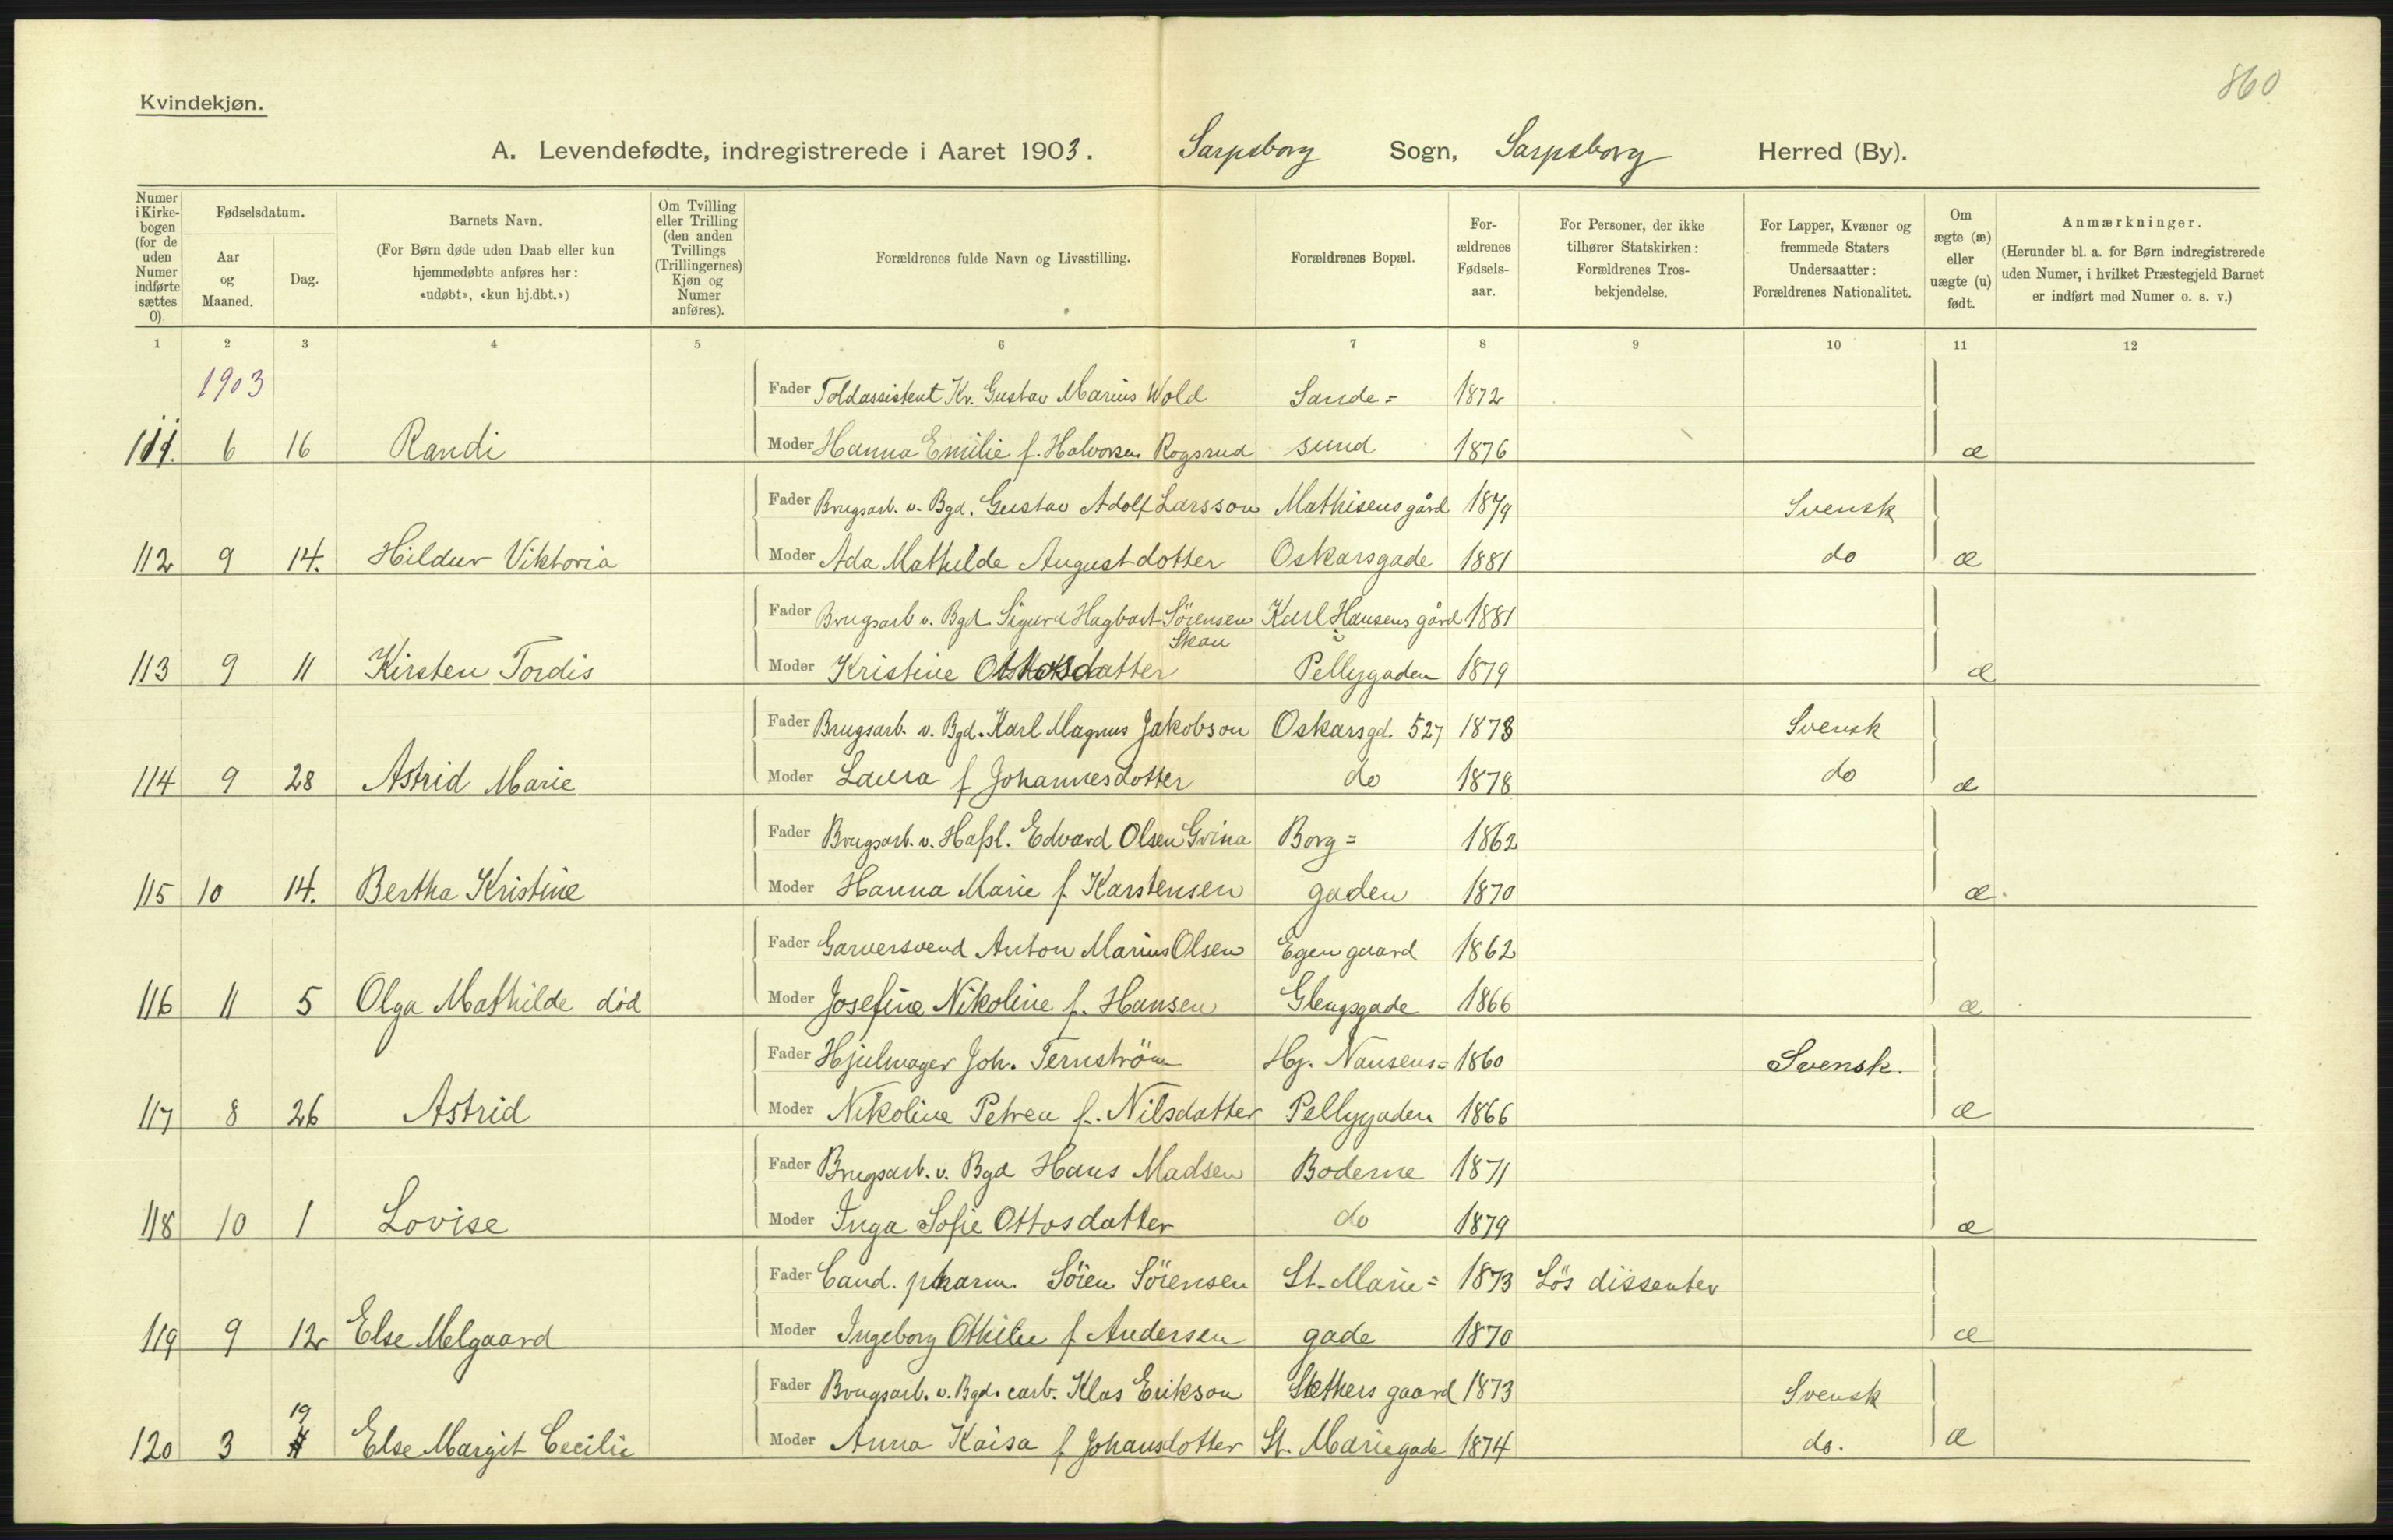 860
Kvindekjøn.
A. Levendefødte, indregistrerede i Aaret 1903. Sarpsborg Sogn, Sarpsborg Herred (By).
Numer i Kirkebogen (for de uden Numer indførte sættes 0).
Fødselsdatum.
Aar og Maaned.
Dag.
Barnets Navn.
(For Børn døde uden Daab eller kun hjemmedøbte anføres her: «udøbt», «kun hj.dbt.»)
Om Tvilling eller Trilling (den anden Tvillings (Trillingernes) Kjøn og Numer anføres).
Forældrenes fulde Navn og Livsstilling.
Forældrenes Bopæl.
Forældrenes Fødselsaar.
For Personer, der ikke tilhører Statskirken: Forældrenes Trosbekjendelse.
For Lapper, Kvæner og fremmede Staters Undersaatter: Forældrenes Nationalitet.
Om ægte (æ) eller uægte (u) født.
Anmærkninger.
(Herunder bl. a. for Børn indregistrerede uden Numer, i hvilket Præstegjeld Barnet er indført med Numer o. s. v.)
1 2 3 4 5 6 7 8 9 10 11 12
1903
Fader Toldassistent Kr. Gustav Marius Wold Sande= 1872
111. 6 16 Randi Moder Hanna Emilie f. Halvorsen Rogsrud sund 1876 æ
Fader Brugsarb. v. Bgd. Gustav Adolf Larsson Mathisens gård 1879 Svensk
112 9 14. Hildur Viktoria Moder Ada Mathilde Augustdotter Oskarsgade 1881 do æ
Fader Brugsarb v. Bgd. Sigurd Hagbart Sörensen Karl Hansens gård 1881
Skau i
113 9 11 Kirsten Tordis Moder Kristine Ottosdatter Pellygaden 1879 æ
Fader Brugsarb. v. Bgd. Karl Magnus Jakobson Oskarsgd. 527 1878 Svensk
114 9 28 Astrid Marie Moder Laura f Johannesdotter do 1878 do æ
Fader Brugsarb. v. Hafsl. Edvard Olsen Grina Borg= 1862
115 10 14. Bertha Kristine Moder Hanna Marie f Karstensen gaden 1870 æ.
Fader Garversvend Anton Marius Olsen Egen gaard 1862
116 11 5 Olga Mathilde död Moder Josefine Nikoline f. Hansen Glengsgade 1866 æ
Fader Hjulmager Joh. Ternström Hj. Nansens= 1860 Svensk.
117 8 26 Astrid Moder Nikoline Petrea f. Nilsdatter Pellygaden 1866 æ
Fader Brugsarb. v. Bgd Hans Madsen Boderne 1871
118 10 1 Lovise Moder Inga Sofie Ottosdatter do 1879 æ
Fader Cand. pharm. Sören Sörensen St. Marie= 1873 Lös dissenter
119 9 12 Else Melgaard Moder Ingeborg Othilie f Andersen gade 1870 æ
Fader Brugsarb. v. Bgd. carb. Klas Erikson gaard 1873 Svensk
19
120 3 Else Margit Cecilie Moder Anna Kaisa f Johansdotter St. Mariegade 1874 do. æ